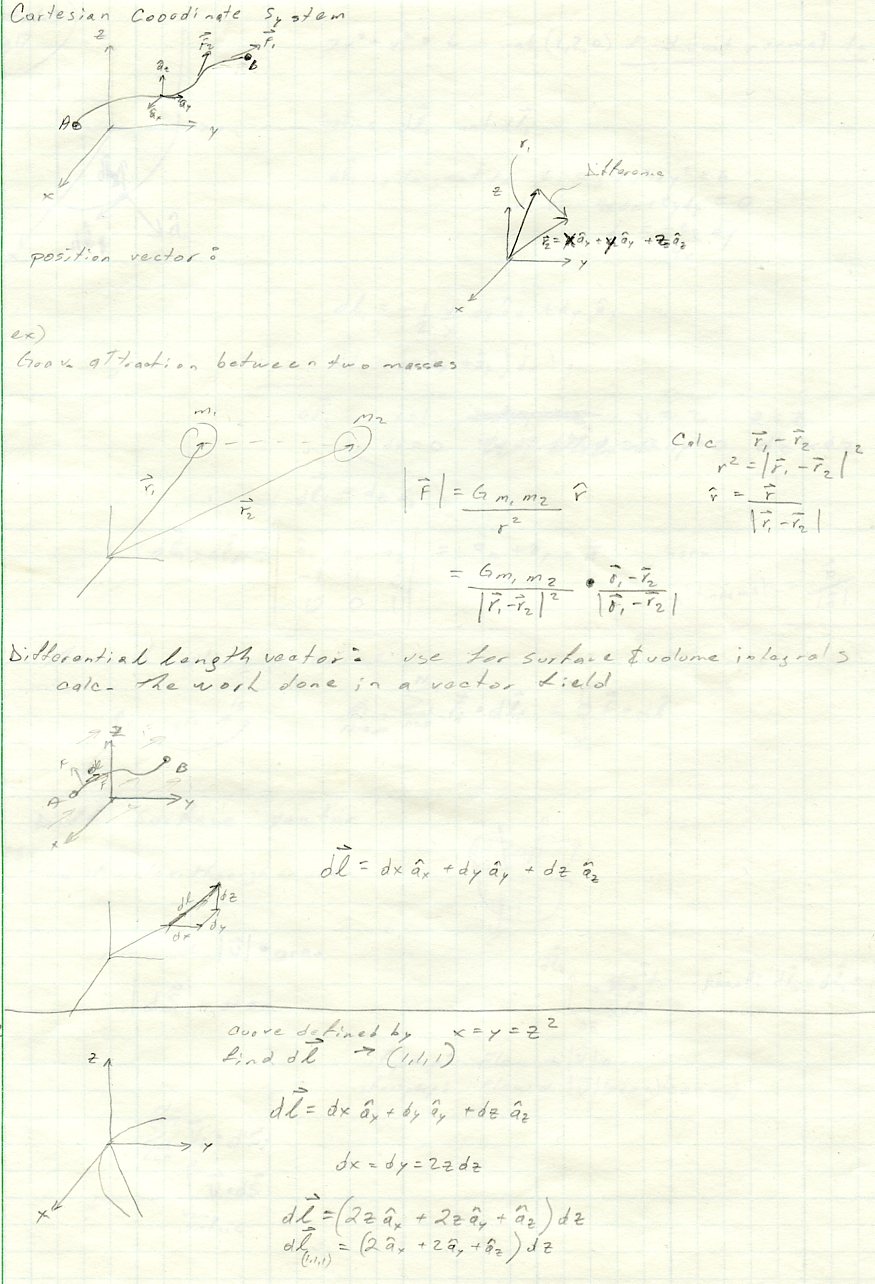 Cartesian Coordinate System
z
F₂⃗ F₁⃗
â_z
B
A
â_x â_y
y
x
r₁
Difference
z
r₂⃗ = x â_x + y â_y + z₂ â_z
y
x
position vector:
ex)
Grav. attraction between two masses
m₁ m₂
r₁⃗
r₂⃗
Calc r₁⃗ - r₂⃗
r² = |r₁⃗ - r₂⃗|²
|F⃗| = G m₁ m₂ / r² r̂
r̂ = r⃗ / |r₁⃗ - r₂⃗|
= G m₁ m₂ / |r₁⃗ - r₂⃗|² • r₁⃗ - r₂⃗ / |r₁⃗ - r₂⃗|
Differential length vector: use for surface & volume integrals
calc. the work done in a vector field
z
F dl B
F
A
y
x
dl⃗ = dx â_x + dy â_y + dz â_z
dl dz
dx dy
curve defined by x = y = z²
find dl⃗ → (1,1,1)
z
dl⃗ = dx â_x + dy â_y + dz â_z
y
dx = dy = 2z dz
x
dl⃗ = (2z â_x + 2z â_y + â_z) dz
dl⃗ (1,1,1) = (2 â_x + 2 â_y + â_z) dz